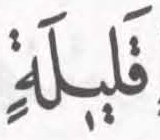 قَلِيلَةٍ